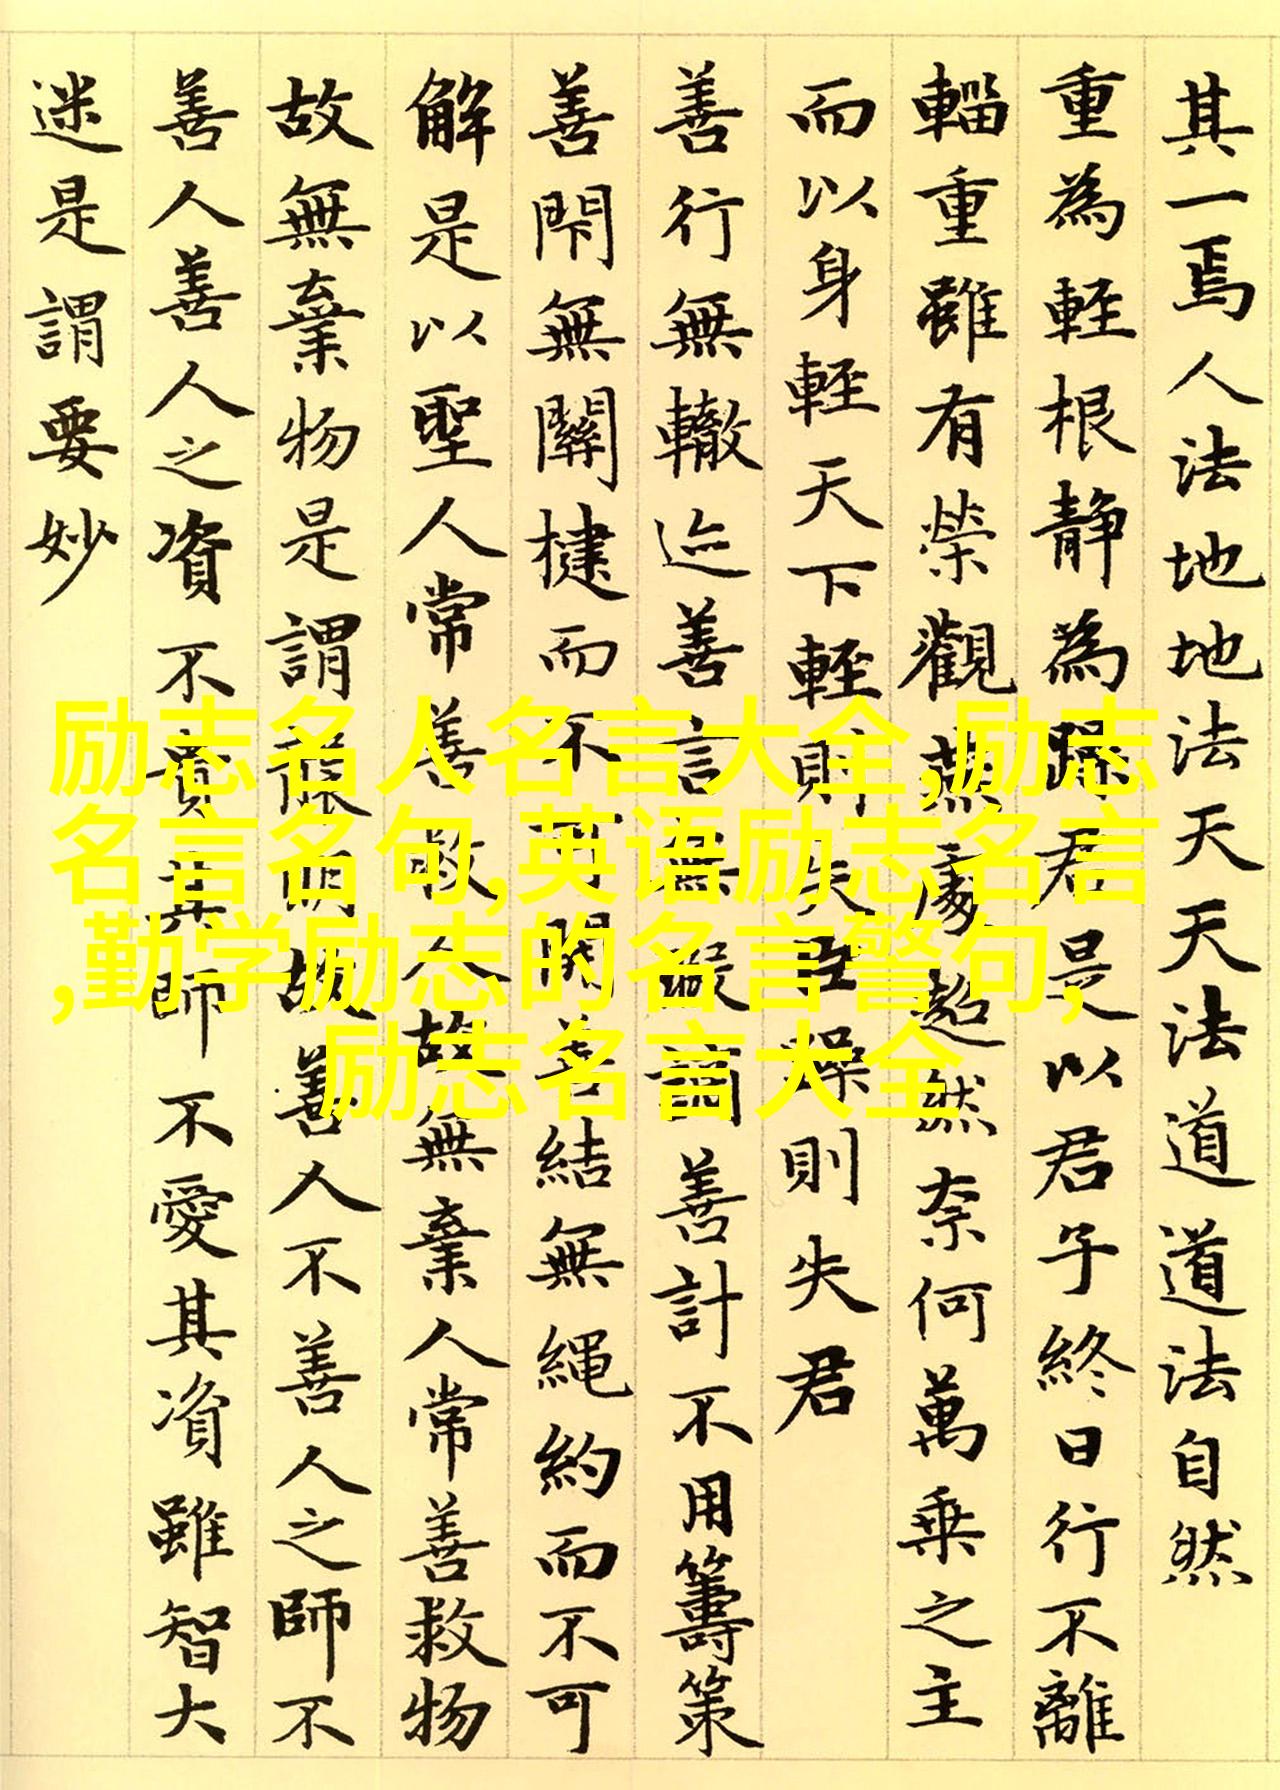 其一焉人法地地法天天法道道法自然
重為輕根静為躁君是以君子終日行不離
輜重雖有榮觀燕處超然奈何萬乘之主
而以身輕天下輕則失臣躁則失君
善行無轍迹善言無瑕讁善計不用籌策
善閇無關楗而不可開善結無繩約而不可
解是以聖人常善救人故無棄人常善救物
故無棄物是謂襲明故善人不善人之師不
善人善人之資不貴其師不愛其資雖智大
迷是謂要妙
励志名人名言大全,励志
名言名句,英语励志名言
,勤学励志的名言警句,
励志名言大全